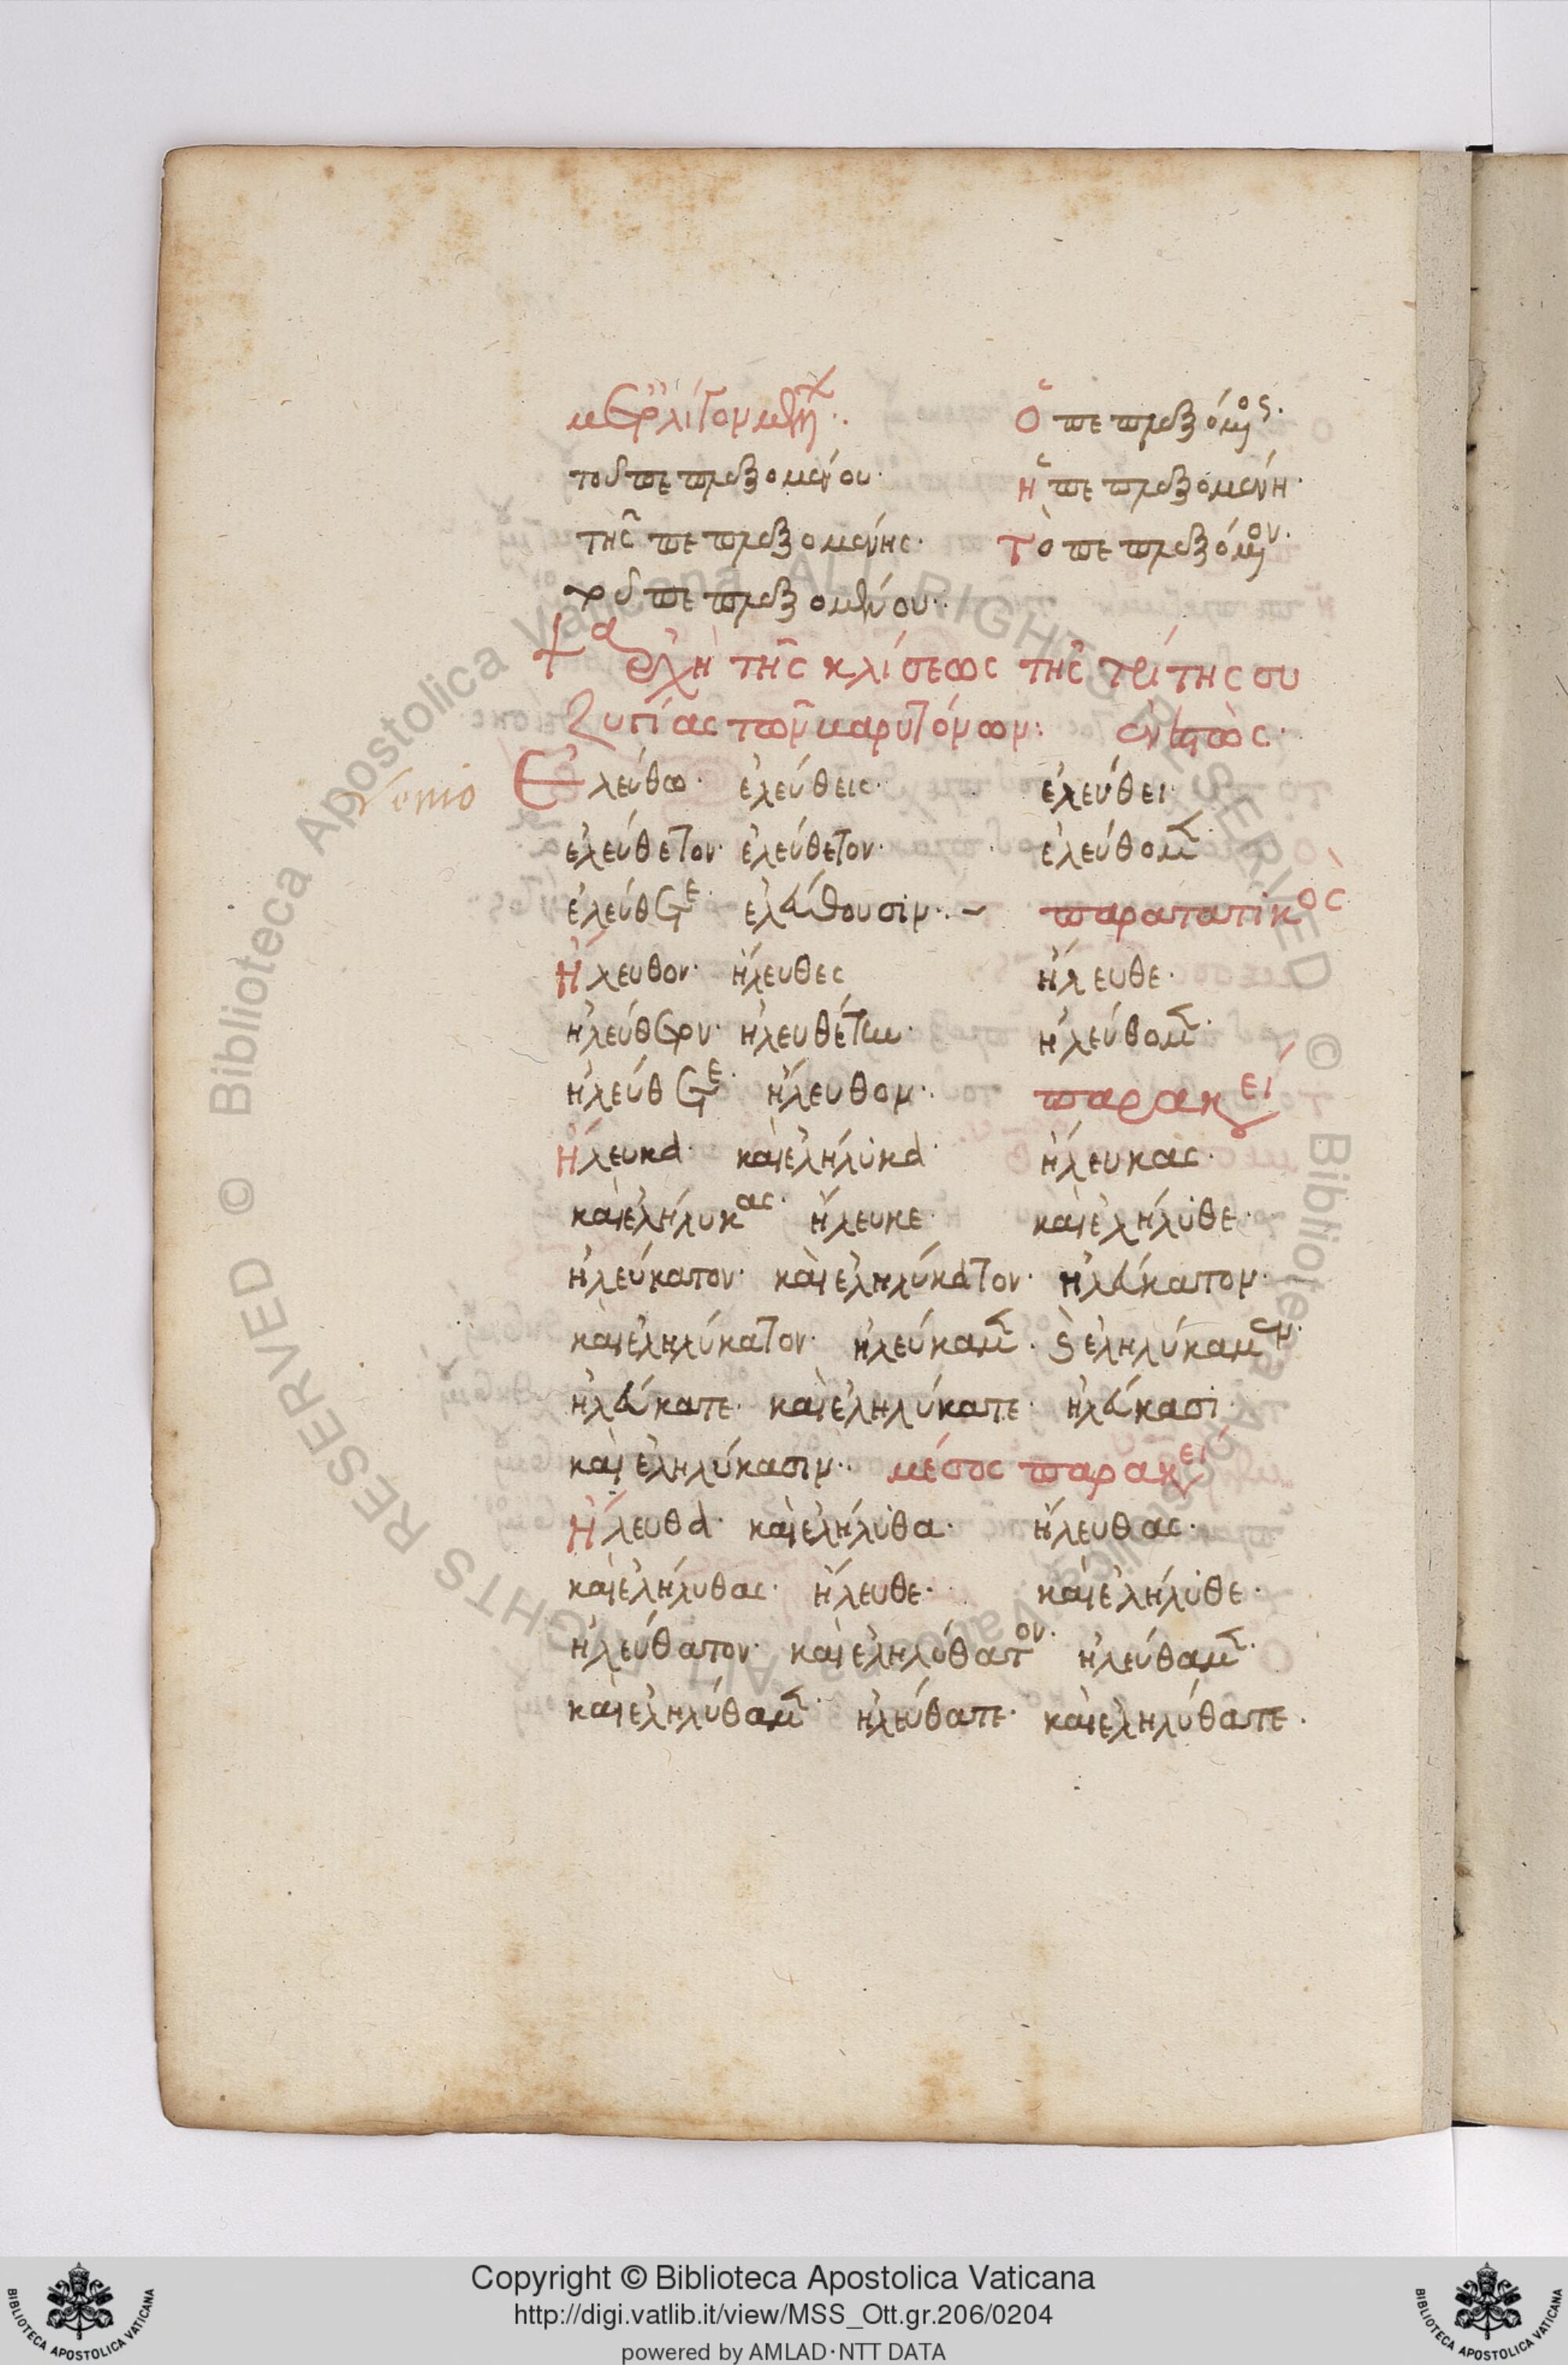 ὁ πεπραξόμενος·
τοῦ πεπραξομένου· ἡ πεπραξομένη·
τῆς πεπραξομένης· Τὸ πεπραξόμενον·
τοῦ πεπραξομένου·
ἀρχὴ τῆς κλίσεως τῆς τρίτης συ
ζυγίας τῶν βαρυτόνων: ἐνεστὼς·
Venio Ἐλεύθω· ἐλεύθεις· ἐλεύθει·
ἐλεύθετον· ἐλεύθετον· ἐλεύθομεν·
ἐλεύθετε· ἐλεύθουσιν·.– παρατατικὸς
Ἤλευθον· ἤλευθες ἤλευθε·
ἠλεύθετον· ἠλευθέτην· ἠλεύθομεν·
ἠλεύθετε· ἤλευθον· παρακεί
Ἤλευκα· καὶ ἐλήλυκα· ἤλευκας·
καὶ ἐλήλυκας· ἤλευκε· καὶ ἐλήλυθε·
ἠλεύκατον· καὶ ἐληλύκατον· ἠλεύκατον·
καὶ ἐληλύκατον· ἠλεύκαμεν· καὶ ἐληλύκαμεν·
ἠλεύκατε· καὶ ἐληλύκατε· ἠλεύκασι·
καὶ ἐληλύκασιν·. μέσος παρακεί
Ἤλευθα· καὶ ἐλήλυθα· ἤλευθας·
καὶ ἐλήλυθας· ἤλευθε· καὶ ἐλήλυθε·
ἠλεύθατον· καὶ ἐληλύθατον· ἠλεύθαμεν·
καὶ ἐληλύθαμεν· ἠλεύθατε· καὶ ἐληλύθατε·
Copyright © Biblioteca Apostolica Vaticana
http://digi.vatlib.it/view/MSS_Ott.gr.206/0204
powered by AMLAD·NTT DATA